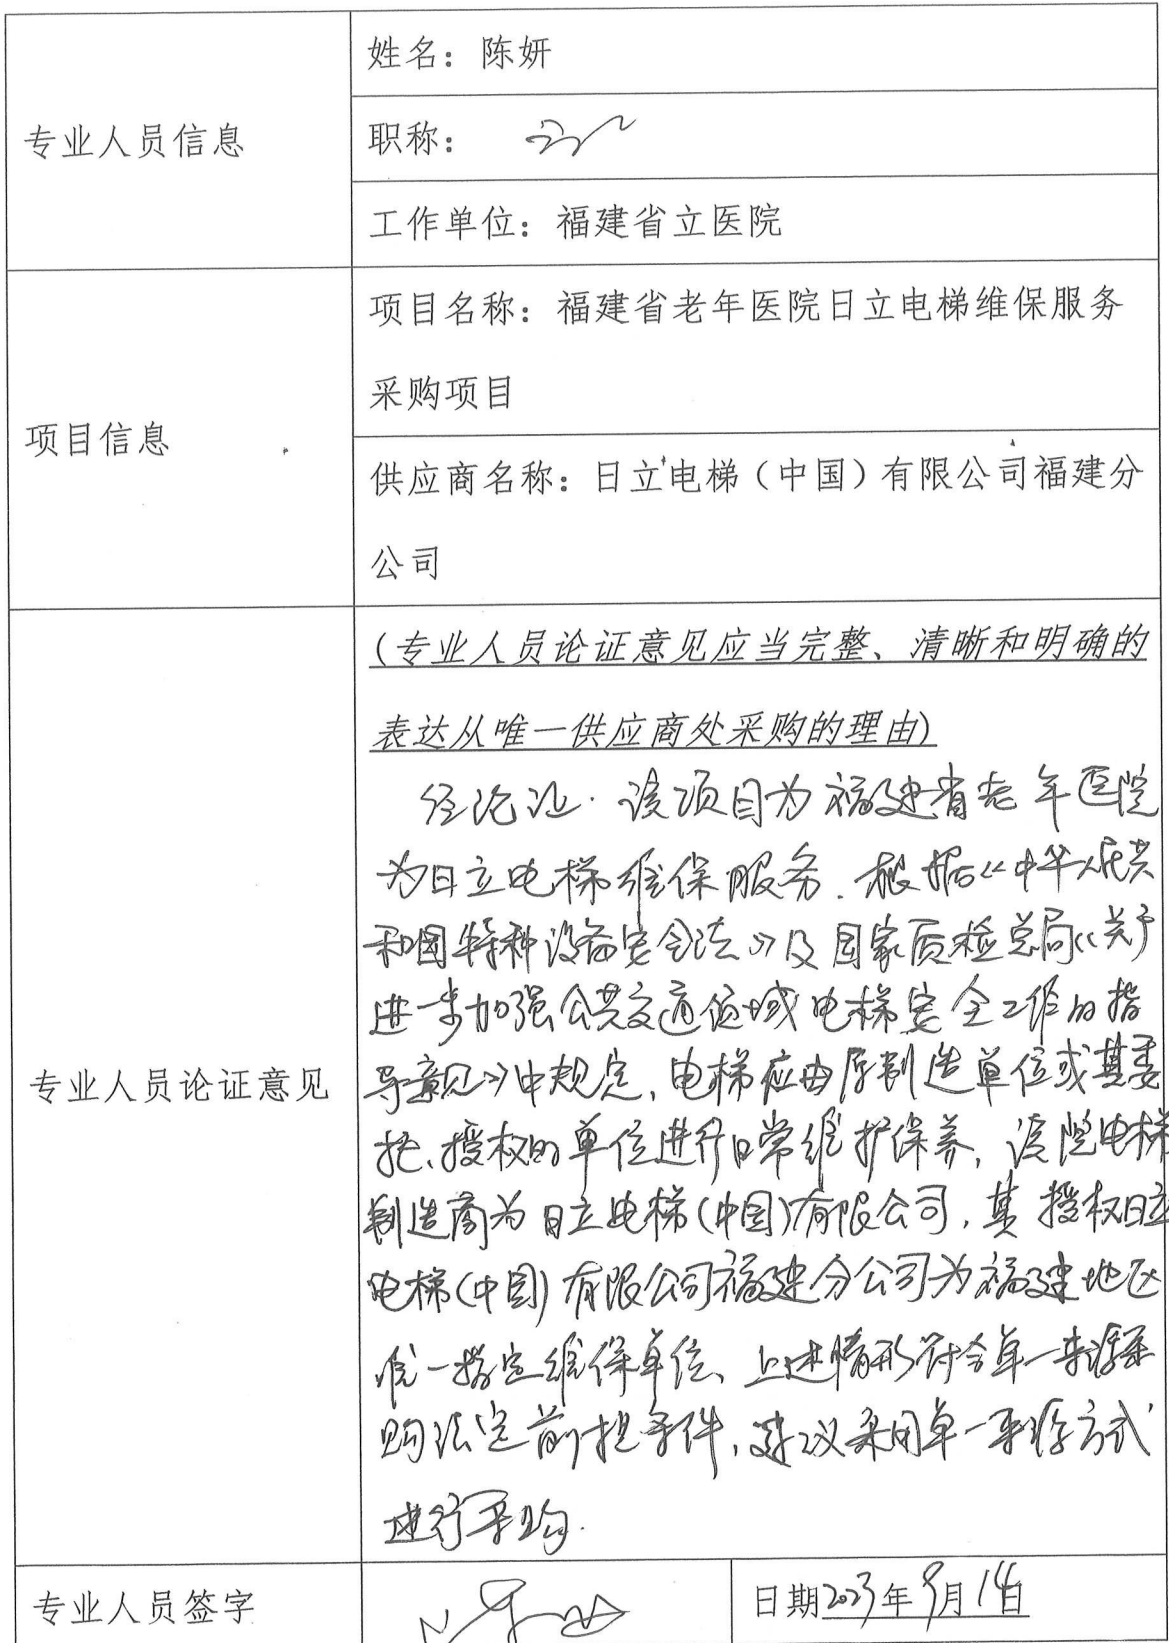 专业人员信息
姓名：陈妍
职称：
工作单位：福建省立医院
项目信息
项目名称：福建省老年医院日立电梯维保服务
采购项目
供应商名称：日立电梯（中国）有限公司福建分
公司
专业人员论证意见
(专业人员论证意见应当完整、清晰和明确的
表达从唯一供应商处采购的理由)
经论证.该项目为福建省老年医院
为日立电梯维保服务.根据《中华人民共
和国特种设备安全法》及国家质检总局《关于
进一步加强公共交通领域电梯安全工作的指
导意见》中规定,电梯应由原制造单位或其委
托、授权的单位进行日常维护保养,该院电梯
制造商为日立电梯(中国)有限公司,其授权日立
电梯(中国)有限公司福建分公司为福建地区
唯一指定维保单位、上述情形符合单一来源采
购法定前提条件,建议采用单一来源方式
进行采购.
专业人员签字
日期2023年9月14日